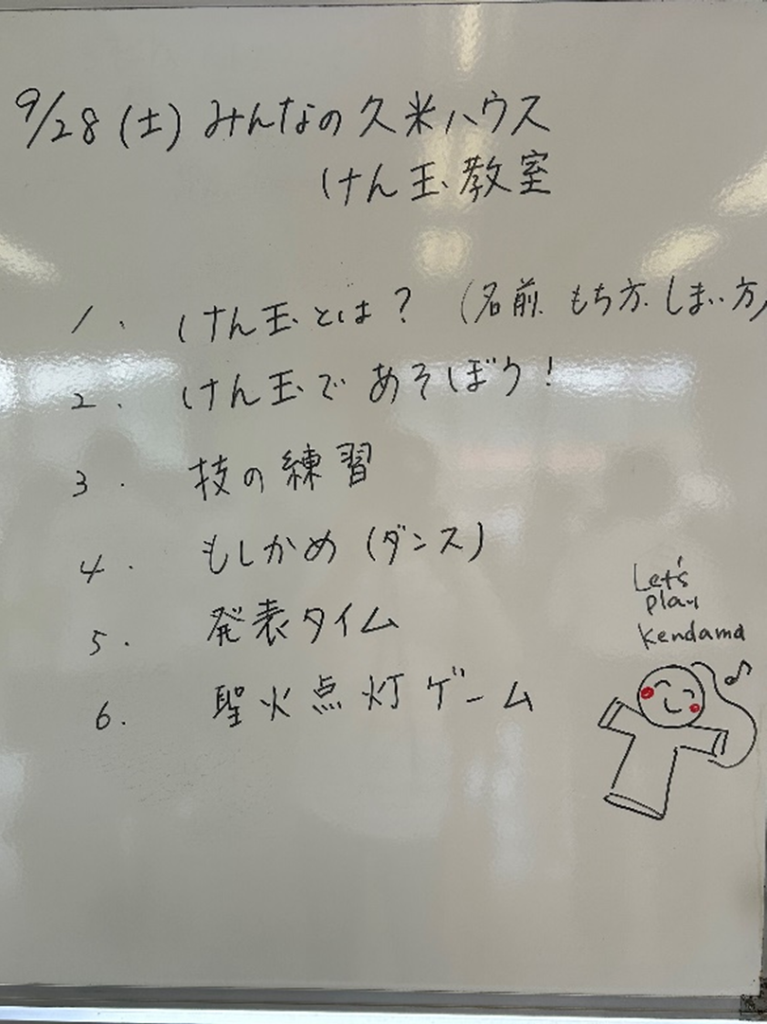 9/28(土)みんなの久米ハウス
けん玉教室
1. けん玉とは?(名前、もち方、しまい方)
2. けん玉であそぼう!
3. 技の練習
4. もしかめ(ダンス)
5. 発表タイム
6. 聖火点灯ゲーム
Let's
play
kendama